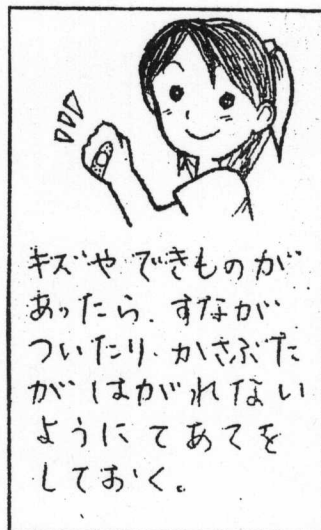 キズや できものが
あったら、すなが
ついたり、かさぶた
が はがれない
ようにてあてを
しておく。